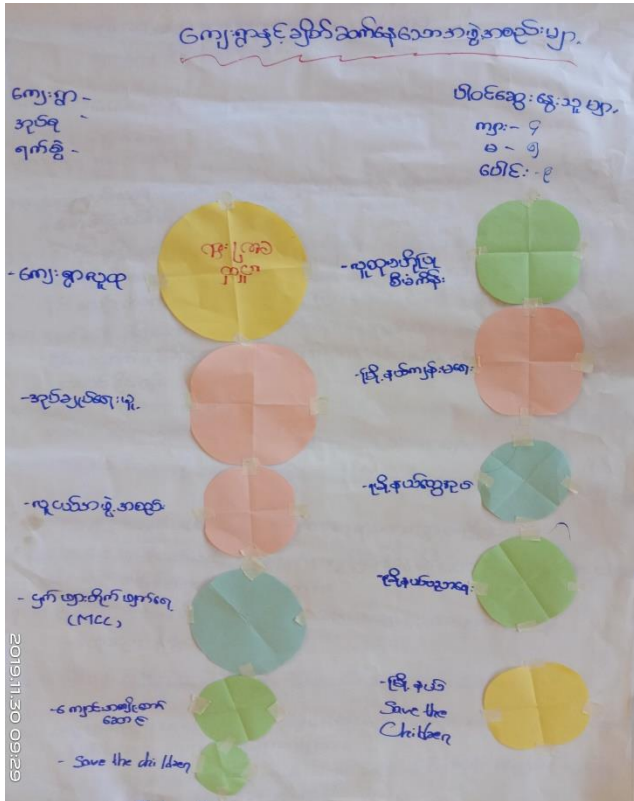 ကျေးရွာနှင့်ချိတ်ဆက်နေသောအဖွဲ့အစည်းများ
ကျေးရွာ -
အုပ်စု -
ရက်စွဲ -
ပါဝင်ဆွေးနွေးသူများ
ကျား - ၄
မ - ၅
ပေါင်း - ၉
- ကျေးရွာလူထု
- အုပ်ချုပ်ရေးမှူး
- လူငယ်သာဖွဲ့အစည်း
- ငှက်ဖျားတိုက်ဖျက်ရေး
(MCC)
- Save the children
- လူထုဗဟိုပြု
စီမံကိန်း
- မြို့နယ်ကျန်းမာရေး
- မြို့နယ်ထွေအုပ်
- မြို့နယ်ပညာရေး
- မြို့နယ်
Save the
Children
2019.11.30 09:29